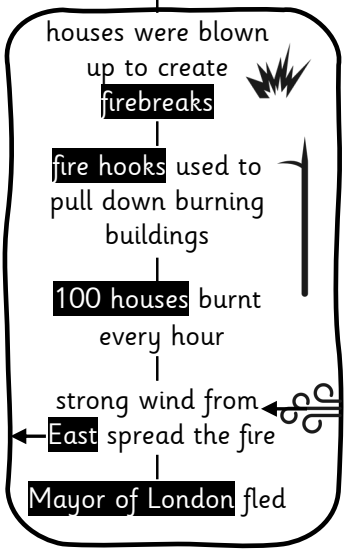 houses were blown
up to create
firebreaks
fire hooks used to
pull down burning
buildings
100 houses burnt
every hour
strong wind from
East spread the fire
Mayor of London fled